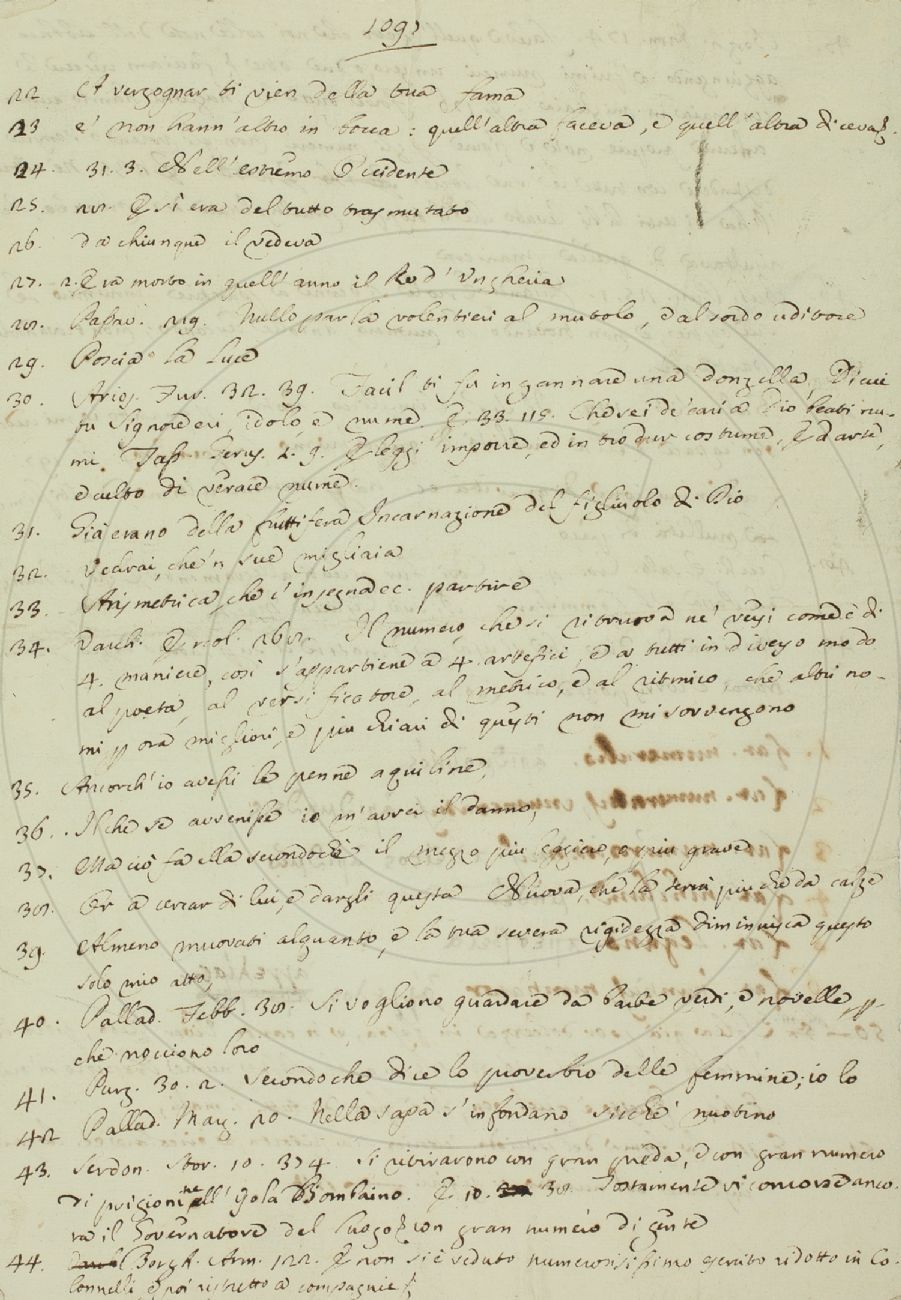 1091
22 Et vergognar ti vien della tua fama
23 e' non hann'altro in bocca: quell'altra faceva, e quell'altra diceva.
24. 31. 3. Nell'estremo Occidente
25. 28. E si era del tutto trasmutato
26. da chiunque il vedeva
27. 2. Era morto in quell'anno il Re d'Ungheria
28. 219. Nullo parla volentieri al mutolo, e al sordo uditore
29. Poscia la luce
30. Arios. Fur. 32. 39. Facil ti fu ingannare una donzella, Di cui
tu Signore eri, idolo, e nume. E 33. 115. Che sei de' cari a Dio beati nu-
mi. Tass. Gerus. 2. 9. E leggi imporre, ed introdur costume, Ed arte,
e culto di verace nume.
31. Già erano della fruttifera Incarnazione del figliuolo di Dio
32. Vedrai, che 'n sue migliaia
33. Arismetrica, che c'insegna ec. partire
34. Varch. Ercol. 262. Il numero, che si ritruova ne' versi come è di
4. maniere, così s'appartiene a 4. artefici, e a tutti in diverso modo
al poeta, al versificatore, al metrico, e al ritmico, che altri no-
mi p ora migliori, e più chiari di questi non mi sovvengono
35. Ancorch'io avessi le penne aquiline,
36. Il che se avvenisse io m'avrei il danno,
37. Ma ciò fa ella secondochè il mezzo più leggiero, o più grave
38. Or a cercar di lui, e dargli questa Nuova, che la terrà più che da calze
39. Almeno muovati alquanto, e la tua severa rigidezza diminuisca questo
solo mio atto,
40. Pallad. Febb. 38. Si vogliono guardare da barbe verdi, e novelle, pp
che nocciono loro
41. Purg. 30. 2. Secondo che dice lo proverbio delle femmine; io lo
42 Pallad. Marz. 20. Nella sapa s'infondano sicchè nuotino
43. Serdon. Stor. 10. 374. Si ritirarono con gran preda, e con gran numero
di prigioni nell'Isola Bombaino. E 10. 38 Tostamente vi concorse anco-
ra il Governatore del luogo con gran numero di gente
44. Borgh. Arm. 122. E non si è veduto numerosissimo esercito ridotto in Co-
lonnelli, e poi ristretto a compagnie